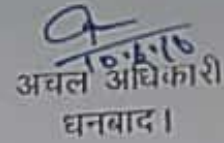 10.6.16
अचल अधिकारी
धनबाद।